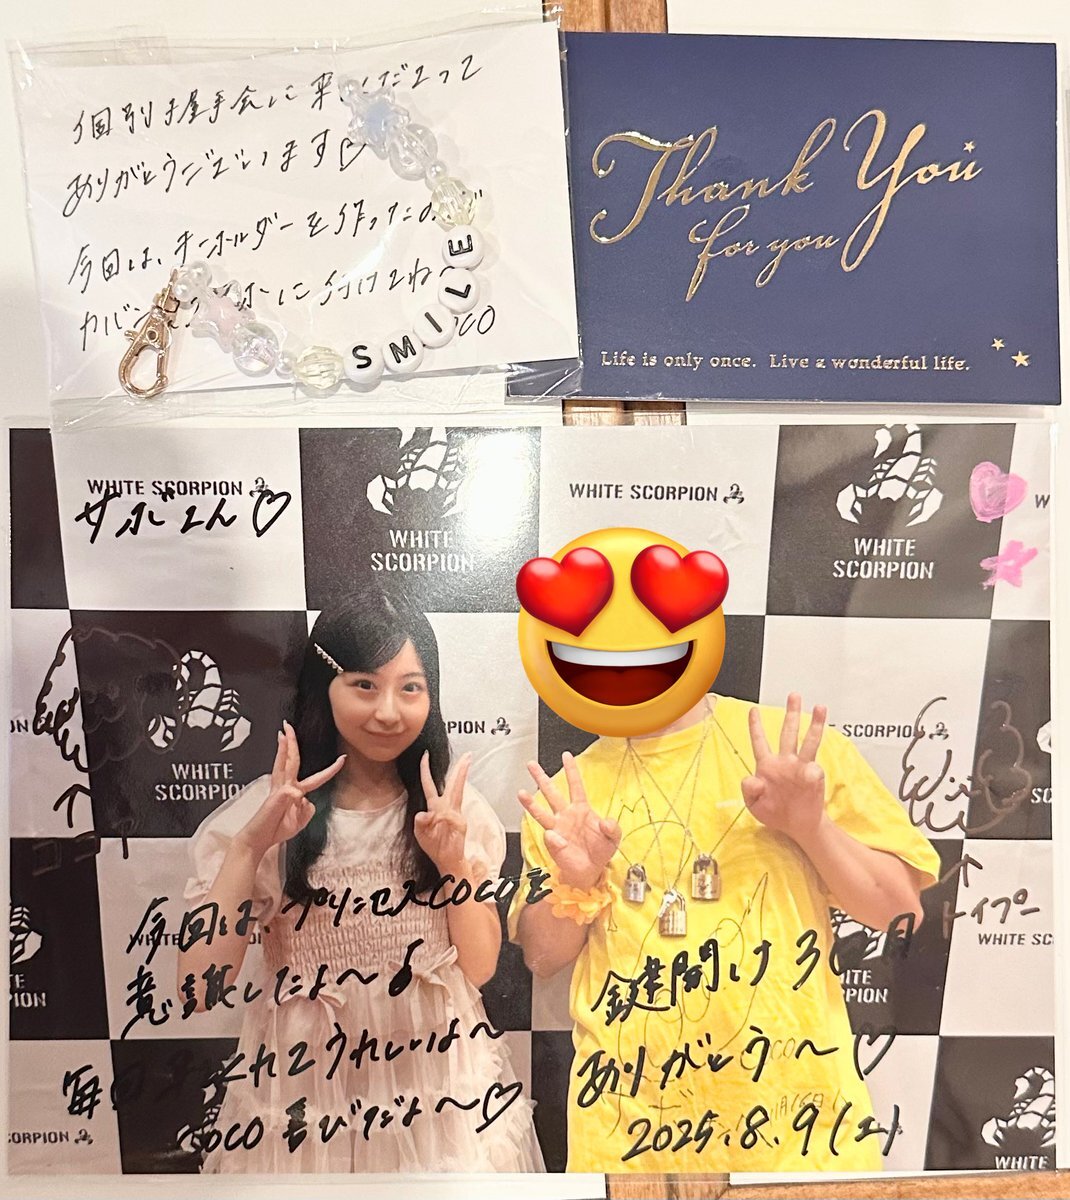 個別握手会に来てくださって
ありがとうございます♡
今回は、キーホルダーを作ったので
カバン 付けてね〜
COCO
SMILE
Thank You
for you
Life is only once. Live a wonderful life.
WHITE SCORPION
サボさん♡
WHITE SCORPION
WHITE SCORPION
WHITE SCORPION
WHITE SCORPION
WHITE SCORPION
ココア
トイプー
今回は、プリンセスCOCOを
意識したよ〜♪
毎回 来てくれてうれしいよ〜
COCO 喜びだよ〜♡
鍵開け
ありがとう〜♡
2025.8.9(土)